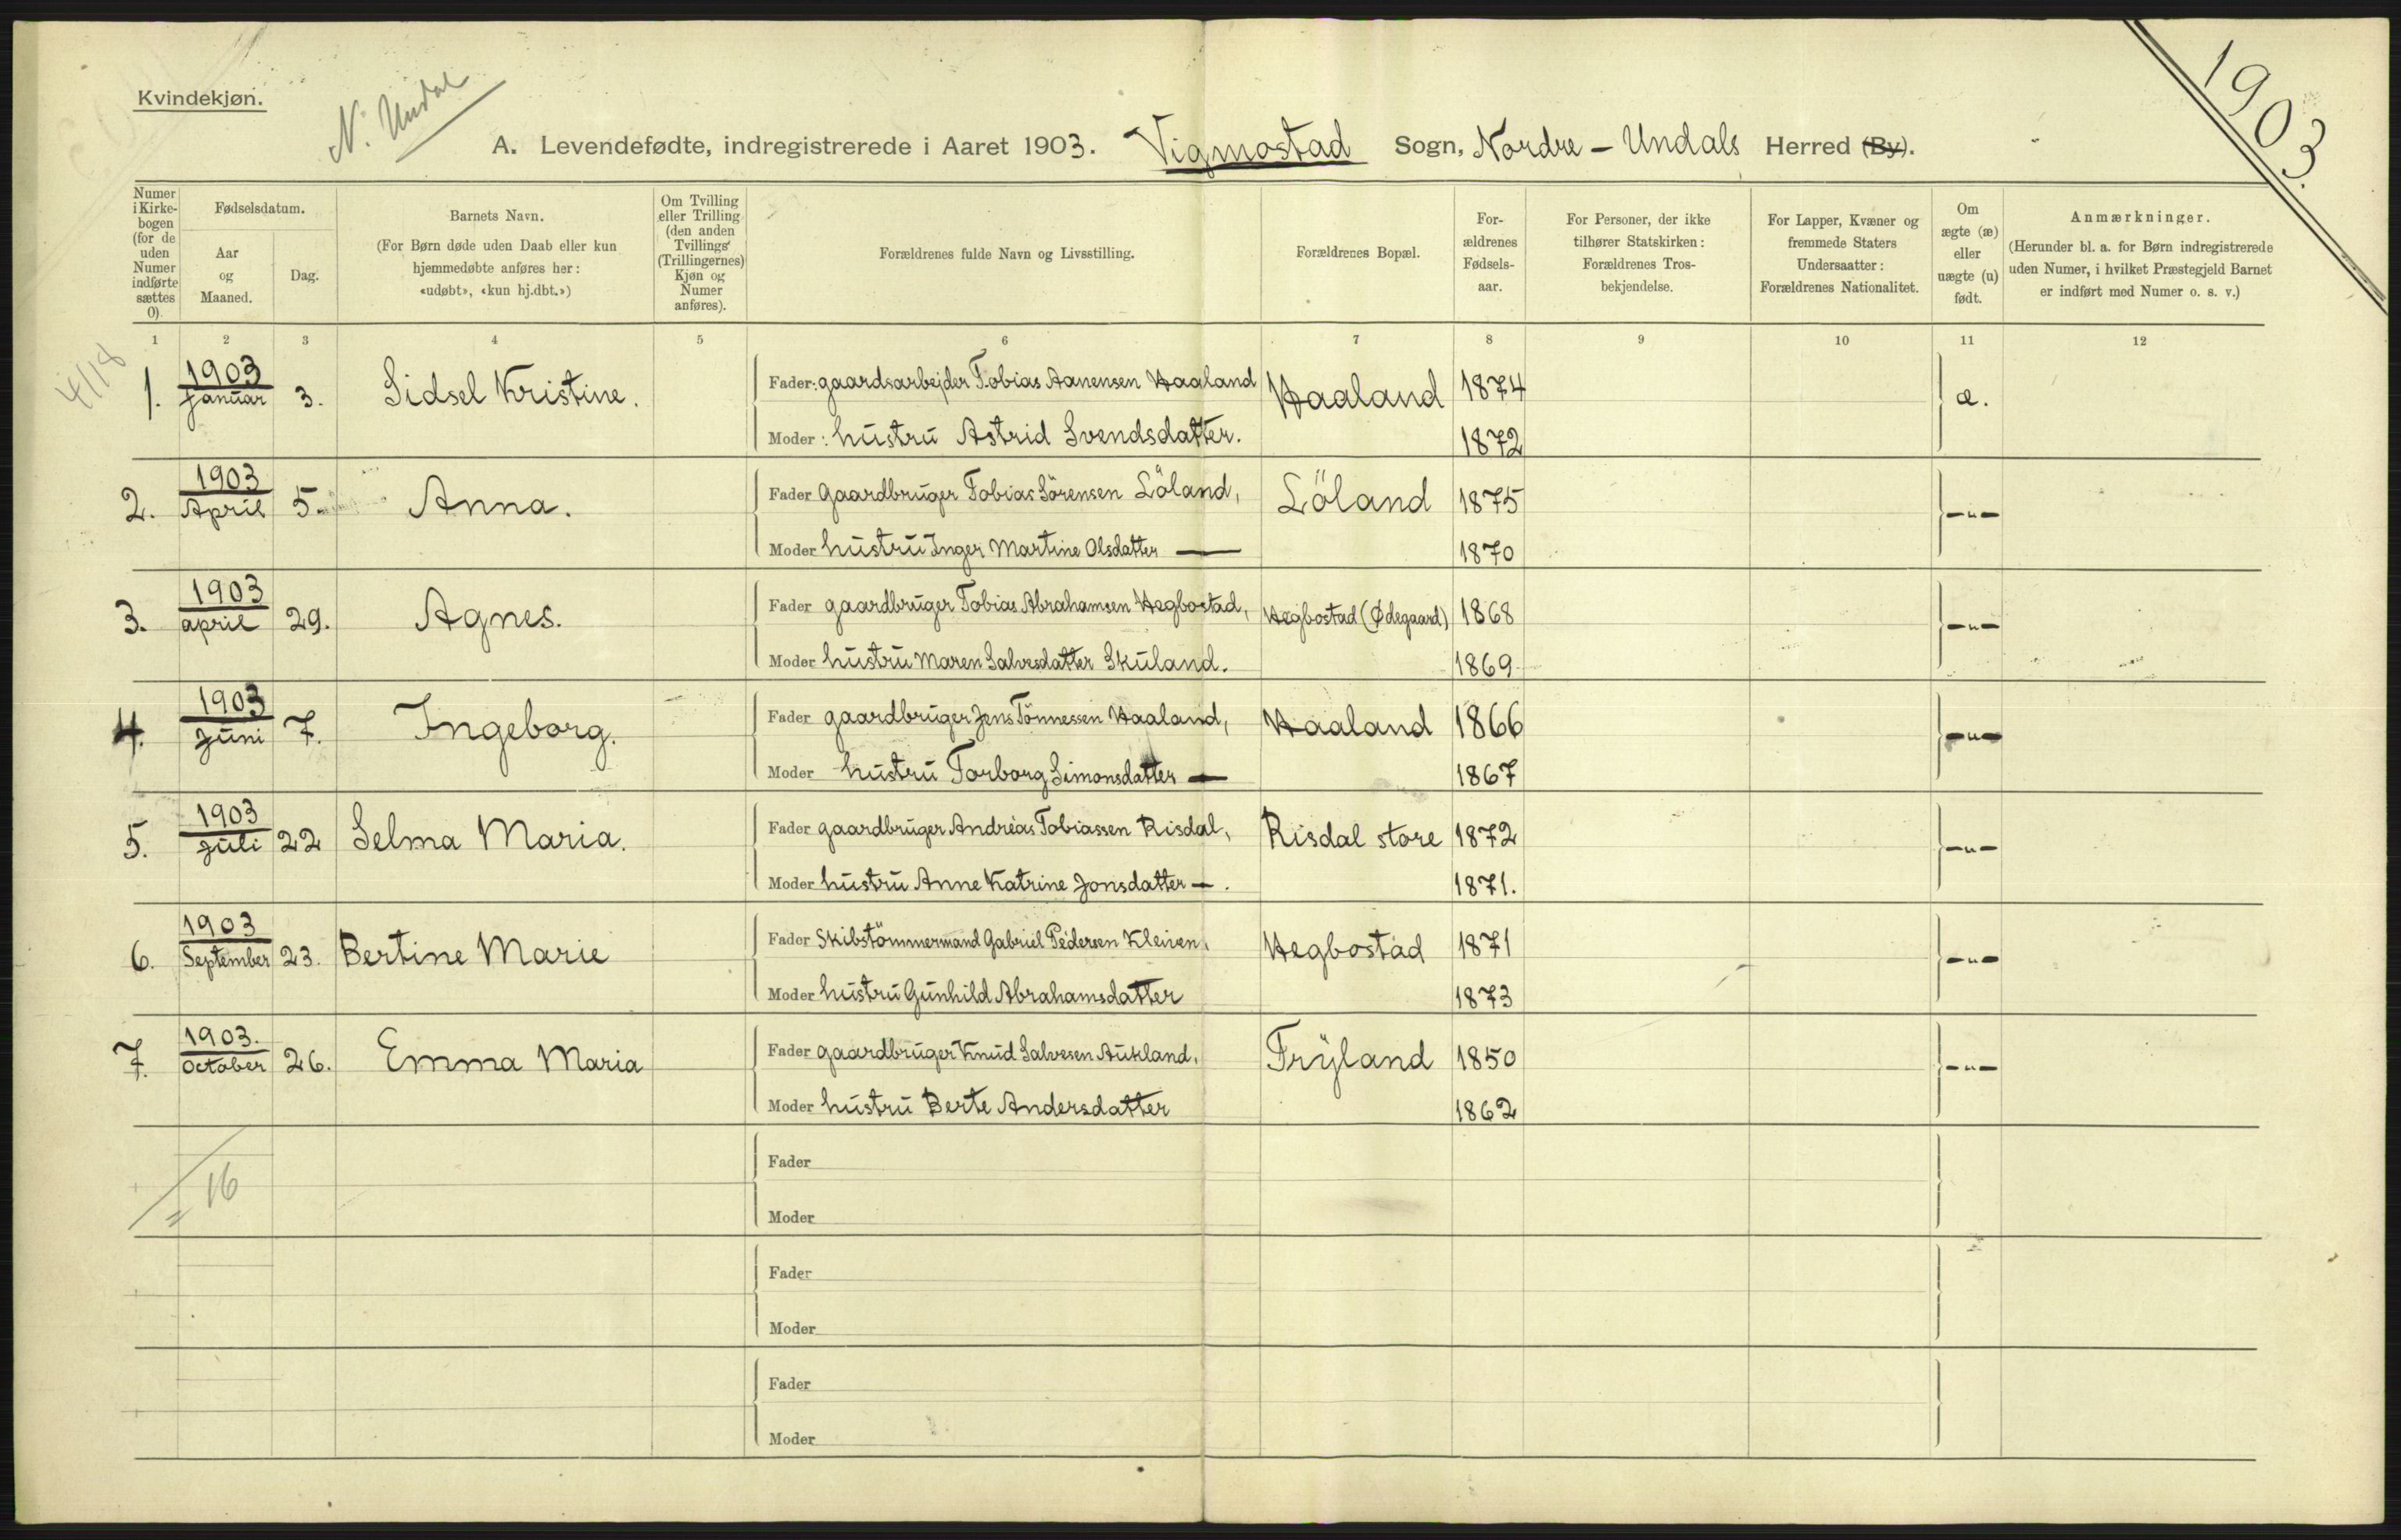 Kvindekjøn.
N. Undal
1903.
A. Levendefødte, indregistrerede i Aaret 1903. Vigmostad Sogn, Nordre - Undals Herred (By).
Numer i Kirkebogen (for de uden Numer indførte sættes 0).
Fødselsdatum.
Aar og Maaned.
Dag.
Barnets Navn.
(For Børn døde uden Daab eller kun hjemmedøbte anføres her: «udøbt», «kun hj.dbt.»)
Om Tvilling eller Trilling (den anden Tvillings (Trillingernes) Kjøn og Numer anføres).
Forældrenes fulde Navn og Livsstilling.
Forældrenes Bopæl.
Forældrenes Fødselsaar.
For Personer, der ikke tilhører Statskirken: Forældrenes Trosbekjendelse.
For Lapper, Kvæner og fremmede Staters Undersaatter: Forældrenes Nationalitet.
Om ægte (æ) eller uægte (u) født.
Anmærkninger.
(Herunder bl. a. for Børn indregistrerede uden Numer, i hvilket Præstegjeld Barnet er indført med Numer o. s. v.)
1 2 3 4 5 6 7 8 9 10 11 12
4/18
1. 1903 Januar 3. Sidsel Kristine. Fader: gaardsarbejder Tobias Aanensen Haaland Haaland 1874 æ.
Moder: hustru Astrid Svendsdatter. 1872
2. 1903 April 5. Anna. Fader Gaardbruger Tobias Sörensen Löland, Löland 1875 -"-
Moder hustru Inger Martine Olsdatter — 1870
3. 1903 april 29. Agnes. Fader gaardbruger Tobias Abrahamsen Hegbostad, Hegbostad (Ødegaard) 1868 -"-
Moder hustru Maren Salvesdatter Skuland. 1869
4. 1903 Juni 7. Ingeborg. Fader gaardbruger Jens Tönnessen Haaland, Haaland 1866 -"-
Moder hustru Torborg Simonsdatter — 1867
5. 1903 Juli 22 Selma Maria. Fader gaardbruger Andreas Tobiassen Risdal, Risdal store 1872 -"-
Moder hustru Anne Katrine Jonsdatter —. 1871.
6. 1903 September 23. Bertine Marie Fader Skibstömmermand Gabriel Pedersen Kleiven, Hegbostad 1871 -"-
Moder hustru Gunhild Abrahamsdatter 1873
7. 1903. October 26. Emma Maria Fader gaardbruger Knud Salvesen Aukland, Fryland 1850 -"-
Moder hustru Berte Andersdatter 1862
Fader
16
Moder
Fader
Moder
Fader
Moder